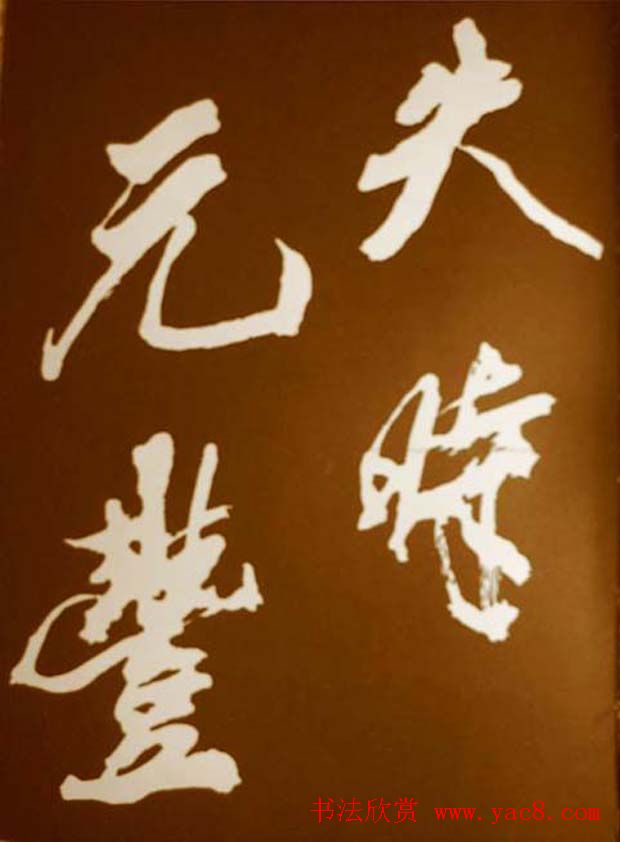 失時
元豐
书法欣赏 www.yac8.com